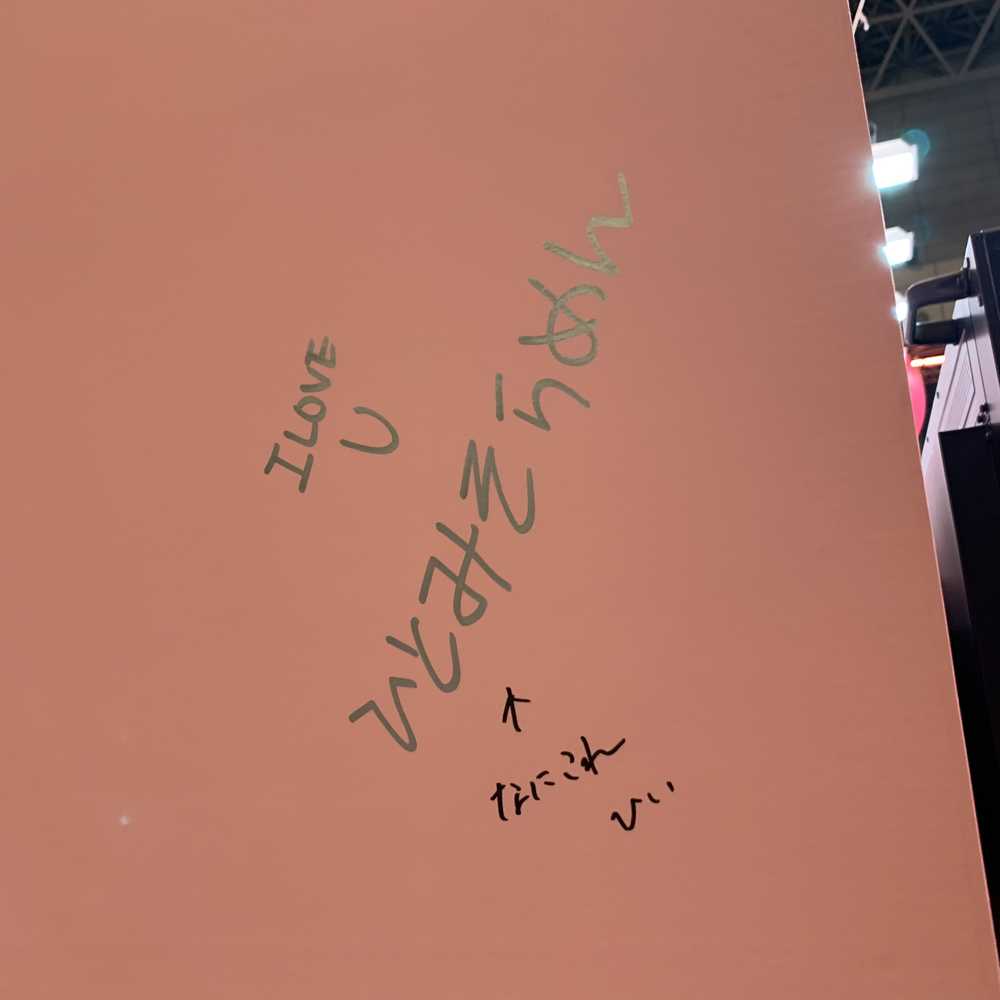 I LOVE
U
ひとみそうめん
↑
なにこれ
ひい